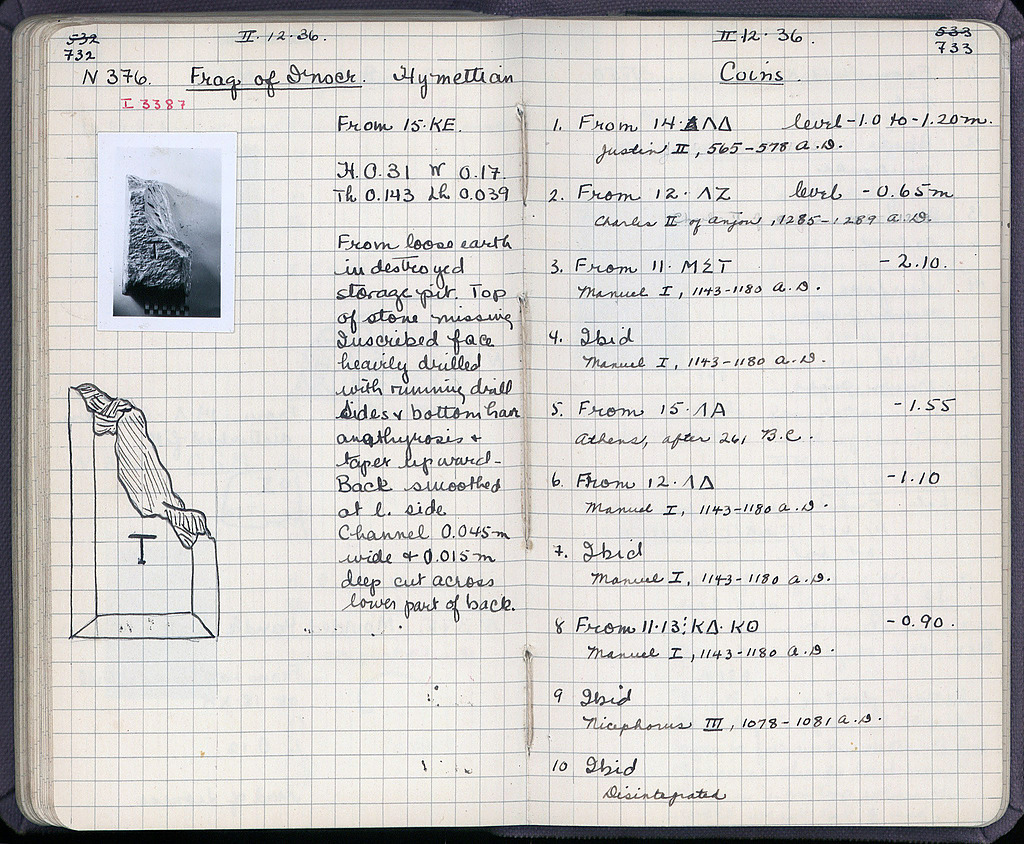 532
732
II·12·36.
N 376. Frag of Inscr. Hymettian
I 3387
From 15·KE.
H. 0.31 W 0.17.
Th 0.143 Lh 0.039
From loose earth
in destroyed
storage pit. Top
of stone missing
Inscribed face
heavily drilled
with running drill
Sides & bottom have
anathyrosis &
taper upward-
Back smoothed
at l. side
Channel 0.045m
wide & 0.015m
deep cut across
lower part of back.
T
II·12·36.
533
733
Coins.
1. From 14·ΛΔ level -1.0 to -1.20m.
Justin II, 565-578 A.D.
2. From 12·ΛΖ level -0.65m
Charles II of Anjou, 1285-1289 A.D.
3. From 11·ΜΣΤ -2.10.
Manuel I, 1143-1180 A.D.
4. Ibid
Manuel I, 1143-1180 A.D.
5. From 15·ΛΑ -1.55
Athens, after 261 B.C.
6. From 12·ΛΔ -1.10
Manuel I, 1143-1180 A.D.
7. Ibid
Manuel I, 1143-1180 A.D.
8 From 11·13:ΚΔ·ΚΘ -0.90.
Manuel I, 1143-1180 A.D.
9 Ibid
Nicephorus III, 1078-1081 A.D.
10 Ibid
Disintegrated